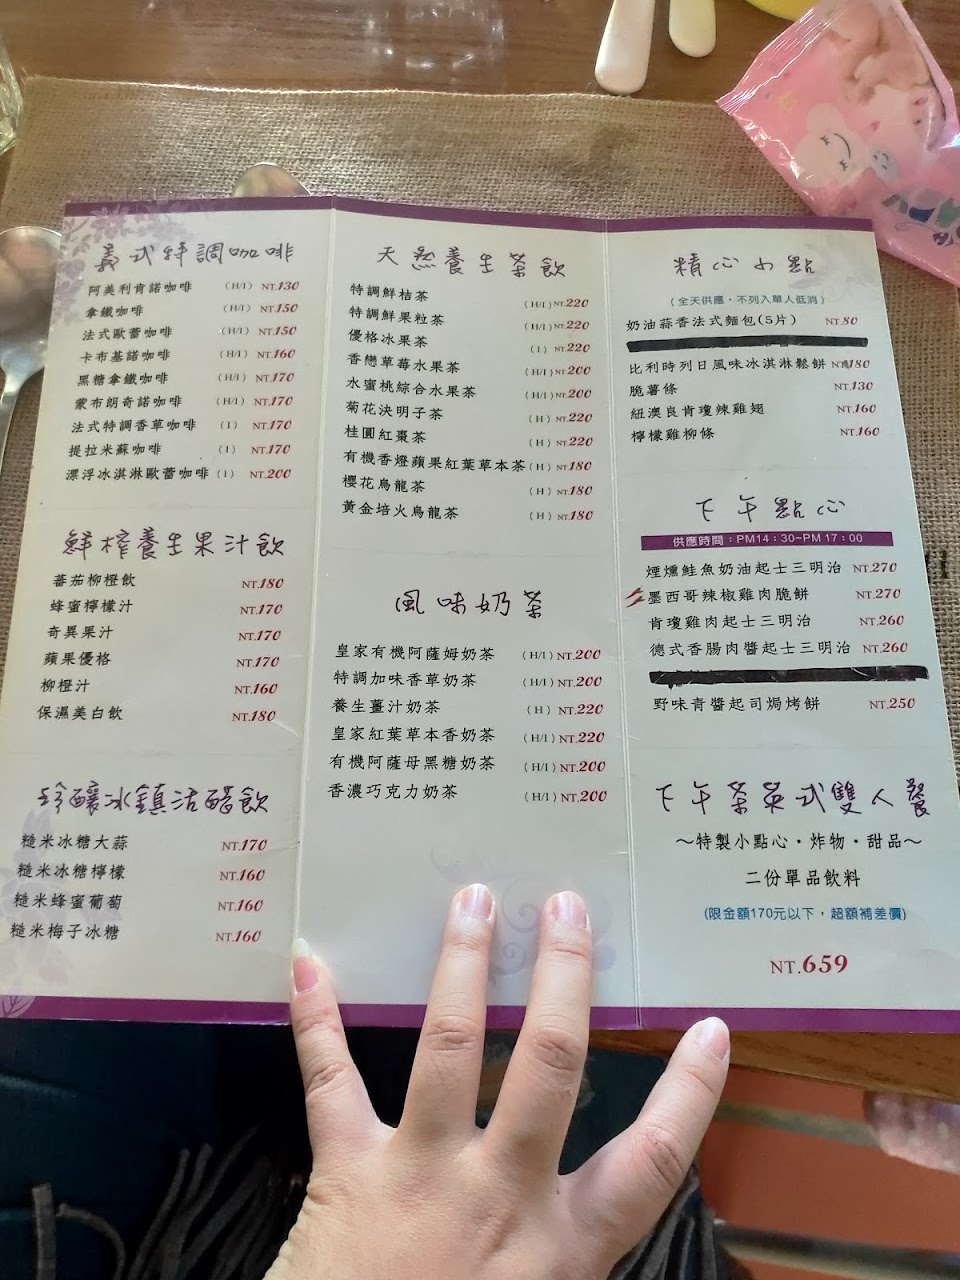 義式特調咖啡
阿美利肯諾咖啡 (H/I) NT.130
拿鐵咖啡 (H/I) NT.150
法式歐蕾咖啡 (H/I) NT.150
卡布基諾咖啡 (H/I) NT.160
黑糖拿鐵咖啡 (H/I) NT.170
蒙布朗奇諾咖啡 (H/I) NT.170
法式特調香草咖啡 (I) NT.170
提拉米蘇咖啡 (I) NT.170
漂浮冰淇淋歐蕾咖啡 (I) NT.200
鮮榨養生果汁飲
蕃茄柳橙飲 NT.180
蜂蜜檸檬汁 NT.170
奇異果汁 NT.170
蘋果優格 NT.170
柳橙汁 NT.160
保濕美白飲 NT.180
珍釀冰鎮活醋飲
糙米冰糖大蒜 NT.170
糙米冰糖檸檬 NT.160
糙米蜂蜜葡萄 NT.160
糙米梅子冰糖 NT.160
天然養生茶飲
特調鮮桔茶 (H/I) NT.220
特調鮮果粒茶 (H/I) NT.220
優格冰果茶 (I) NT.220
香戀草莓水果茶 (H/I) NT.200
水蜜桃綜合水果茶 (H/I) NT.200
菊花決明子茶 (H) NT.220
桂圓紅棗茶 (H) NT.220
有機香燈蘋果紅葉草本茶 (H) NT.180
櫻花烏龍茶 (H) NT.180
黃金培火烏龍茶 (H) NT.180
風味奶茶
皇家有機阿薩姆奶茶 (H/I) NT.200
特調加味香草奶茶 (H/I) NT.200
養生薑汁奶茶 (H) NT.220
皇家紅葉草本香奶茶 (H/I) NT.220
有機阿薩母黑糖奶茶 (H/I) NT.200
香濃巧克力奶茶 (H/I) NT.200
精心小點
(全天供應，不列入單人低消)
奶油蒜香法式麵包(5片) NT.80
比利時列日風味冰淇淋鬆餅 NT.180
脆薯條 NT.130
紐澳良肯瓊辣雞翅 NT.160
檸檬雞柳條 NT.160
下午點心
供應時間：PM14：30~PM 17：00
煙燻鮭魚奶油起士三明治 NT.270
墨西哥辣椒雞肉脆餅 NT.270
肯瓊雞肉起士三明治 NT.260
德式香腸肉醬起士三明治 NT.260
野味青醬起司焗烤餅 NT.250
下午茶英式雙人餐
～特製小點心‧炸物‧甜品～
二份單品飲料
(限金額170元以下，超額補差價)
NT.659